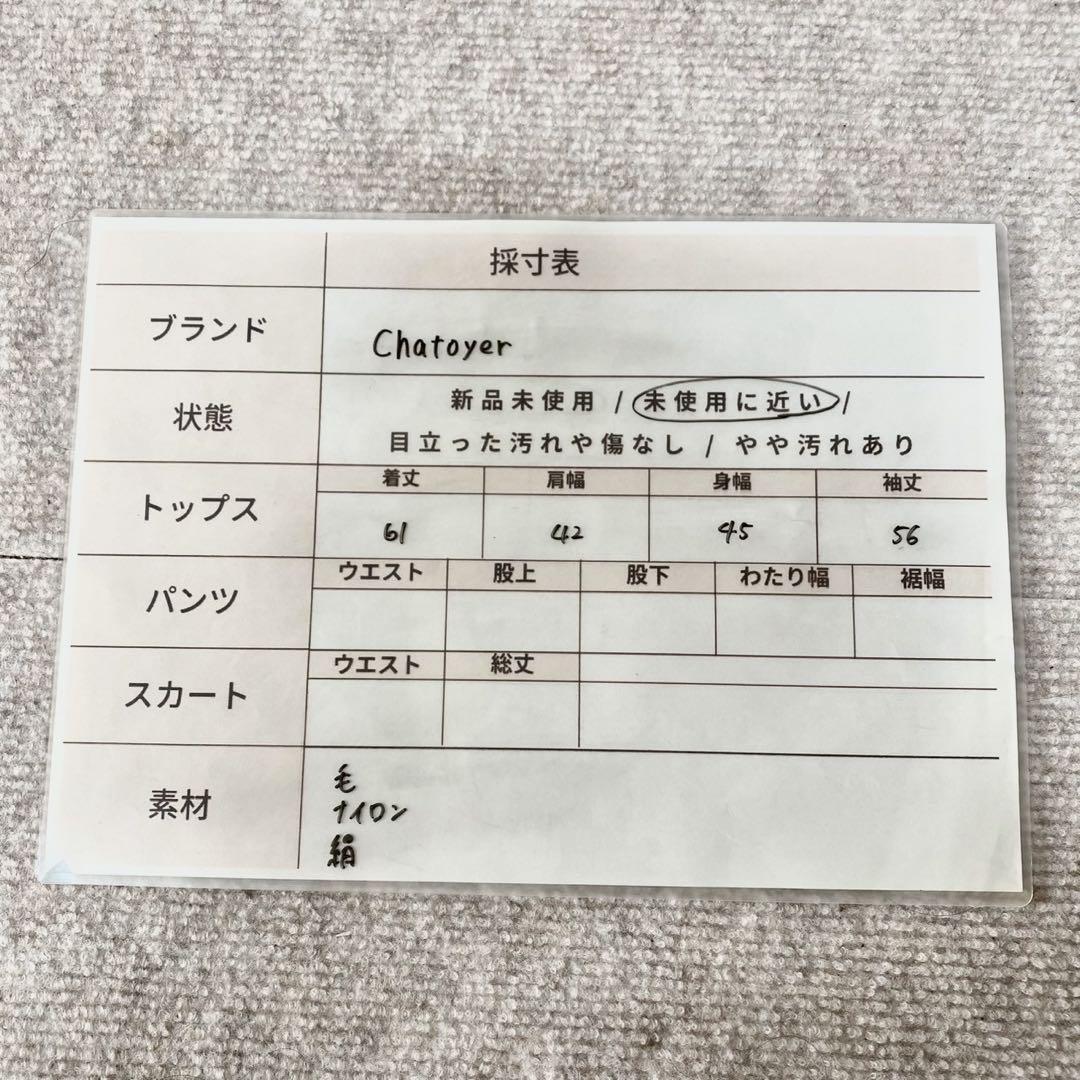 採寸表
ブランド Chatoyer
状態 新品未使用 / 未使用に近い /
目立った汚れや傷なし / やや汚れあり
トップス 着丈 肩幅 身幅 袖丈
61 42 45 56
パンツ ウエスト 股上 股下 わたり幅 裾幅
スカート ウエスト 総丈
素材 毛
ナイロン
絹